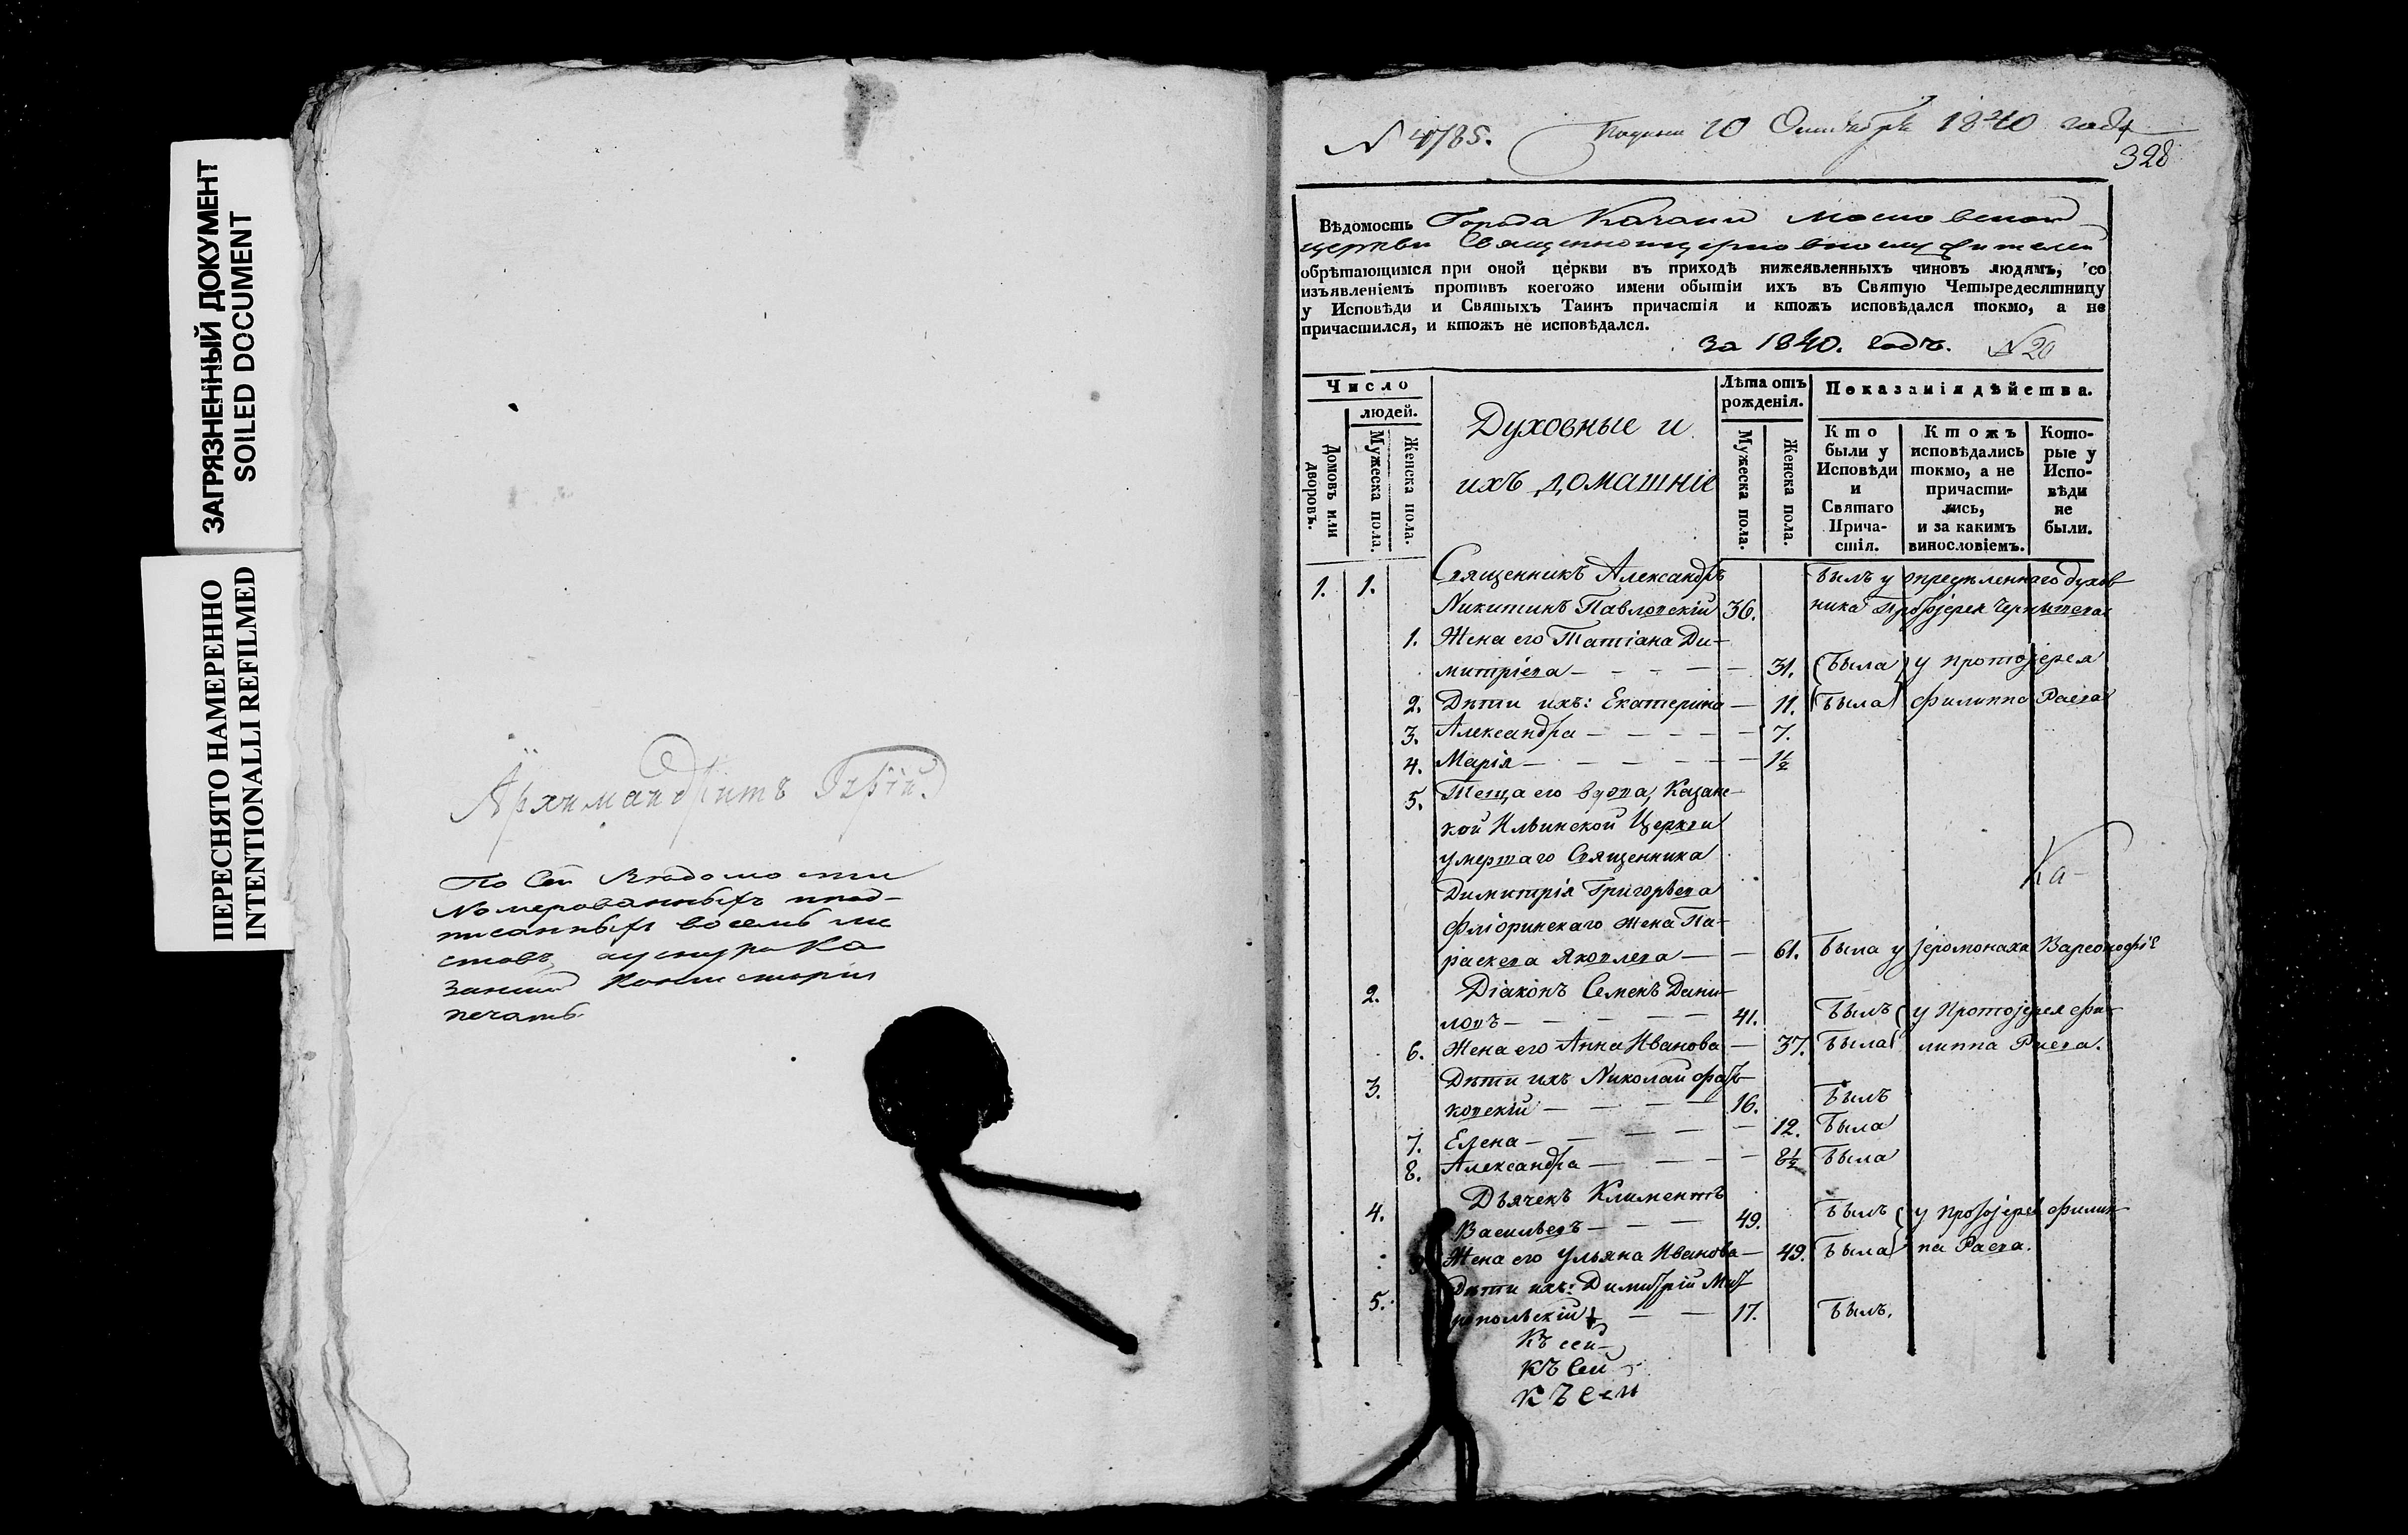 ЗАГРЯЗНЕННЫЙ ДОКУМЕНТ
SOILED DOCUMENT
ПЕРЕСНЯТО НАМЕРЕННО
INTENTIONALLI REFILMED
Архимандритъ
По Сей Ведомости
Номерованныхъ
писанныхъ восемь ли
стовъ
Консистории
печать.
N 4785. 10 Октября 1840 года
328
Вѣдомость Города Казани Московской
церкви
обрѣтающимся при оной церкви въ приходѣ нижеявленныхъ чиновъ людямъ, со
изъявленіемъ противъ коегожо имени обытіи ихъ въ Святую Четыредесятницу
у Исповѣди и Святыхъ Таинъ причастія и ктожъ исповѣдался токмо, а не
причастился, и ктожъ не исповѣдался.
за 1840. годъ. N 20
Число
людей.
Домовъ или дворовъ.
Мужеска пола.
Женска пола.
Духовные и
ихъ домашніе
Лѣта отъ рожденія.
Мужеска пола.
Женска пола.
Показанія дѣйства.
Кто были у Исповѣди и Святаго Причастія.
Ктожъ исповѣдались токмо, а не причасти-лись, и за какимъ винословіемъ.
Кото-рые у Испо-вѣди не были.
1. 1. Священникъ Александръ Былъ у опредѣленнаго духов
Никитинъ Павловскій 36. ника Протоіерея
1. Жена его Татіана Ди-
митріева — 31. Была у протоіерея
2. Дѣти ихъ: Екатерина — 11. Была Филиппа Раева
3. Александра — 7.
4. Марія — 1½
5. Теща его вдова, Казанс-
кой Ильинской Церкви
умершаго Священника
Ка-
Димитрія Григорьева
Фліоринскаго жена Па-
раскева Яковлева — 61. Была у Іеромонаха Варсонофіе
2. Діаконъ Семенъ Дани-
ловъ — 41. Былъ у Протоіерея Фи-
6. Жена его Анна Иванова — 37. Была липпа Раева.
3. Дѣти ихъ Николай
ковскій — 16. Былъ
7. Елена — 12. Была
8. Александра — 8½ Была
4. Дьячекъ Климентъ
Васильевъ — 49. Былъ у Протоіерея Филип
Жена его Ульяна Иванова — 49. Была па Раева.
5. Дѣти ихъ: Димитрій Мит
ропольскій — 17. Былъ.
Къ сей
Къ Сей
Къ Сей